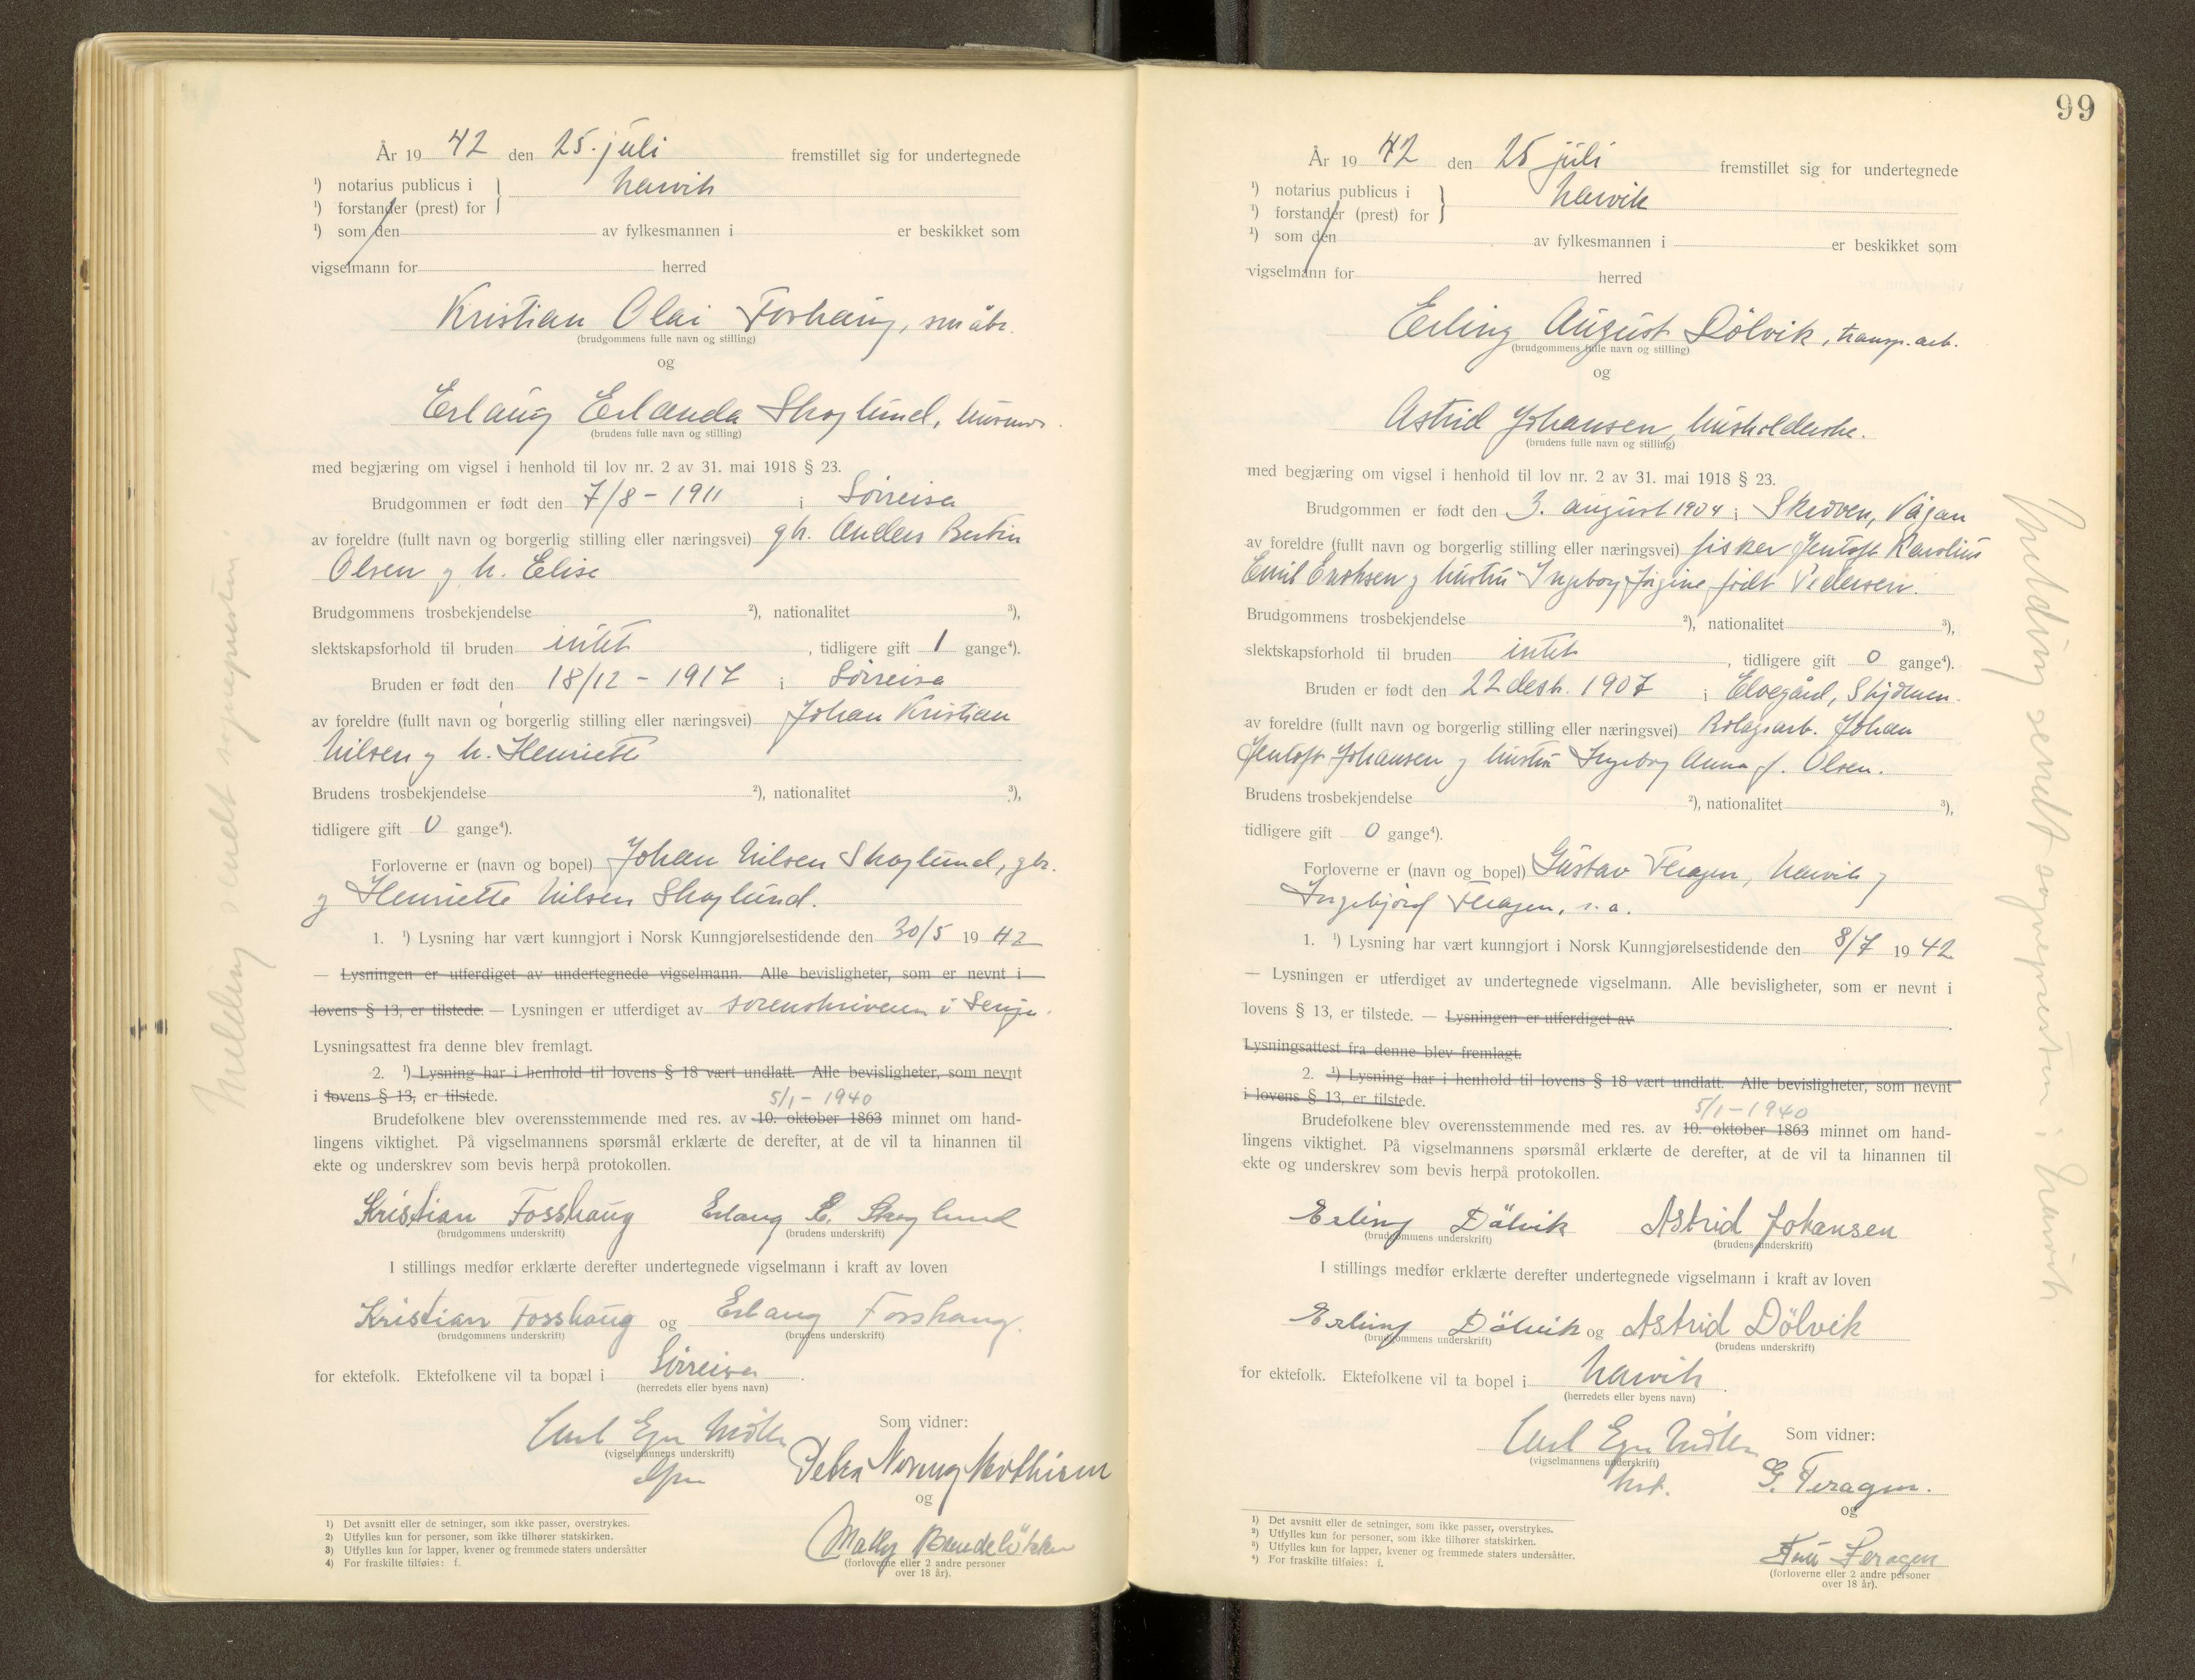 År 19 42 den 25. juli fremstillet sig for undertegnede
¹) notarius publicus i } Narvik
¹) forstander (prest) for
¹) som den av fylkesmannen i er beskikket som
vigselmann for herred
Kristian Olai Foshaug, småbr.
(brudgommens fulle navn og stilling)
og
Erlaug Erlanda Skoglund, husmor.
(brudens fulle navn og stilling)
med begjæring om vigsel i henhold til lov nr. 2 av 31. mai 1918 § 23.
Brudgommen er født den 7/8 - 1911 i Sörreisa
av foreldre (fullt navn og borgerlig stilling eller næringsvei) gb. Anders Bertin
Olsen og h. Elise
Brudgommens trosbekjendelse ²), nationalitet ³),
slektskapsforhold til bruden intet, tidligere gift 1 gange⁴).
Bruden er født den 18/12 - 1917 i Sörreisa
av foreldre (fullt navn og borgerlig stilling eller næringsvei) Johan Kristian
Nilsen og h. Henriette
Brudens trosbekjendelse ²), nationalitet ³),
tidligere gift 0 gange⁴).
Forloverne er (navn og bopel) Johan Nilsen Skoglund, gbr.
og Henriette Nilsen Skoglund.
1. ¹) Lysning har vært kunngjort i Norsk Kunngjørelsestidende den 30/5 19 42
— Lysningen er utferdiget av undertegnede vigselmann. Alle bevisligheter, som er nevnt i
lovens § 13, er tilstede. — Lysningen er utferdiget av sorenskriveren i Senja.
Lysningsattest fra denne blev fremlagt.
2. ¹) Lysning har i henhold til lovens § 18 vært undlatt. Alle bevisligheter, som nevnt
i lovens § 13, er tilstede.
5/1 - 1940
Brudefolkene blev overensstemmende med res. av 10. oktober 1863 minnet om hand-
lingens viktighet. På vigselmannens spørsmål erklærte de derefter, at de vil ta hinannen til
ekte og underskrev som bevis herpå protokollen.
Kristian Fosshaug Erlaug E. Skoglund
(brudgommens underskrift) (brudens underskrift)
I stillings medfør erklærte derefter undertegnede vigselmann i kraft av loven
Kristian Fosshaug og Erlaug Fosshaug.
(brudgommens underskrift) (brudens underskrift)
for ektefolk. Ektefolkene vil ta bopæl i Sörreisa.
(herredets eller byens navn)
Carl Egn
Som vidner:
(vigselmannens underskrift)
Petra
og
Mally
(forloverne eller 2 andre personer
over 18 år).
1) Det avsnitt eller de setninger, som ikke passer, overstrykes.
2) Utfylles kun for personer, som ikke tilhører statskirken.
3) Utfylles kun for lapper, kvener og fremmede staters undersåtter
4) For fraskilte tilføies: f.
Melding sendt sognepresten i
99
År 19 42 den 25 juli fremstillet sig for undertegnede
¹) notarius publicus i } Narvik
¹) forstander (prest) for
¹) som den av fylkesmannen i er beskikket som
vigselmann for herred
Erling August Dölvik, transp. arb.
(brudgommens fulle navn og stilling)
og
Astrid Johansen, husholderske.
(brudens fulle navn og stilling)
med begjæring om vigsel i henhold til lov nr. 2 av 31. mai 1918 § 23.
Brudgommen er født den 3. august 1904 i Skroven, Vågan
av foreldre (fullt navn og borgerlig stilling eller næringsvei) fisker Jentoft Karolius
Emil Enoksen og hustru Ingeborg Jörgine född Pedersen.
Brudgommens trosbekjendelse ²), nationalitet ³),
slektskapsforhold til bruden intet, tidligere gift 0 gange⁴).
Bruden er født den 22 desb. 1907 i Elvegård, Skjomen.
av foreldre (fullt navn og borgerlig stilling eller næringsvei) Bolagsarb. Johan
Jentoft Johansen og hustru Ingeborg Anna f. Olsen.
Brudens trosbekjendelse ²), nationalitet ³),
tidligere gift 0 gange⁴).
Forloverne er (navn og bopel) Gustav Feragen, Narvik og
Ingebjörg Feragen, s.a.
1. ¹) Lysning har vært kunngjort i Norsk Kunngjørelsestidende den 8/7 19 42
— Lysningen er utferdiget av undertegnede vigselmann. Alle bevisligheter, som er nevnt i
lovens § 13, er tilstede. — Lysningen er utferdiget av
Lysningsattest fra denne blev fremlagt.
2. ¹) Lysning har i henhold til lovens § 18 vært undlatt. Alle bevisligheter, som nevnt
i lovens § 13, er tilstede.
5/1 - 1940
Brudefolkene blev overensstemmende med res. av 10. oktober 1863 minnet om hand-
lingens viktighet. På vigselmannens spørsmål erklærte de derefter, at de vil ta hinannen til
ekte og underskrev som bevis herpå protokollen.
Erling Dölvik Astrid Johansen
(brudgommens underskrift) (brudens underskrift)
I stillings medfør erklærte derefter undertegnede vigselmann i kraft av loven
Erling Dölvik og Astrid Dölvik
(brudgommens underskrift) (brudens underskrift)
for ektefolk. Ektefolkene vil ta bopel i Narvik.
(herredets eller byens navn)
Carl Egn
Som vidner:
(vigselmannens underskrift)
G. Feragen.
og
Feragen
(forloverne eller 2 andre personer
over 18 år).
¹) Det avsnitt eller de setninger, som ikke passer, overstrykes.
²) Utfylles kun for personer, som ikke tilhører statskirken.
³) Utfylles kun for lapper, kvener og fremmede staters undersåtter.
⁴) For fraskilte tilføies: f.
Melding sendt sognepresten i Narvik